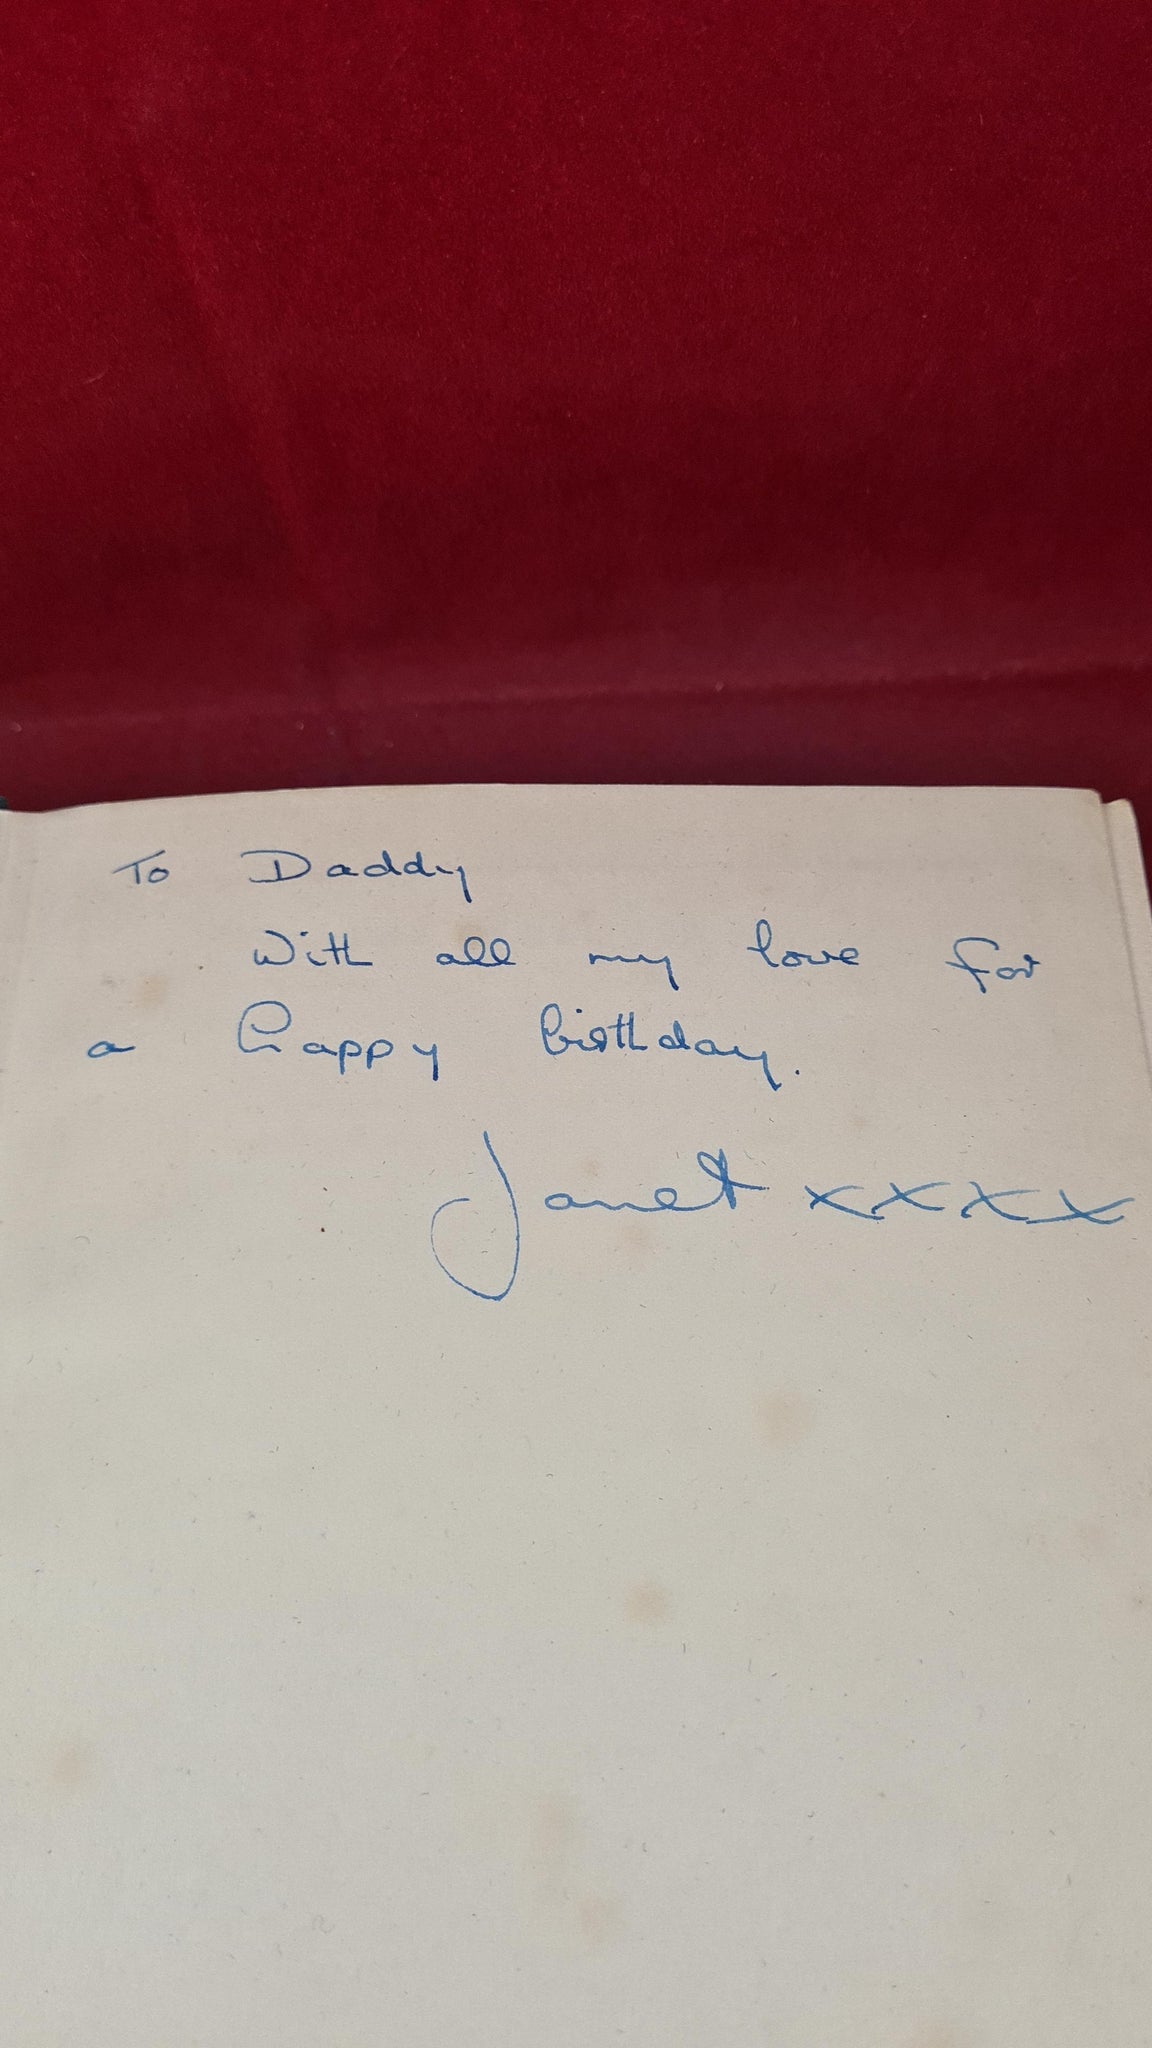 To Daddy
With all my love for
a happy birthday.
Janet xxxx